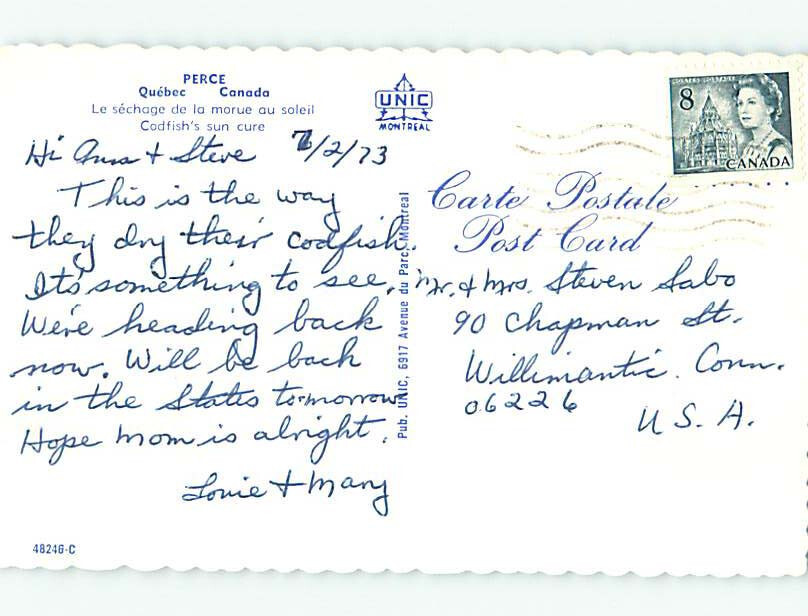 PERCE
Québec Canada
Le séchage de la morue au soleil
Codfish's sun cure
UNIC
MONTREAL
8
POSTES POSTAGE
CANADA
Hi Ann + Steve 7/2/73
This is the way
they dry their codfish.
It's something to see.
We're heading back
now. Will be back
in the States to-morrow
Hope mom is alright.
Louie + Mary
Pub. UNIC, 6917 Avenue du Parc, Montreal
Carte Postale
Post Card
Mr. & Mrs. Steven Sabo
90 Chapman St.
Willimantic. Conn.
06226
U.S.A.
48246-C